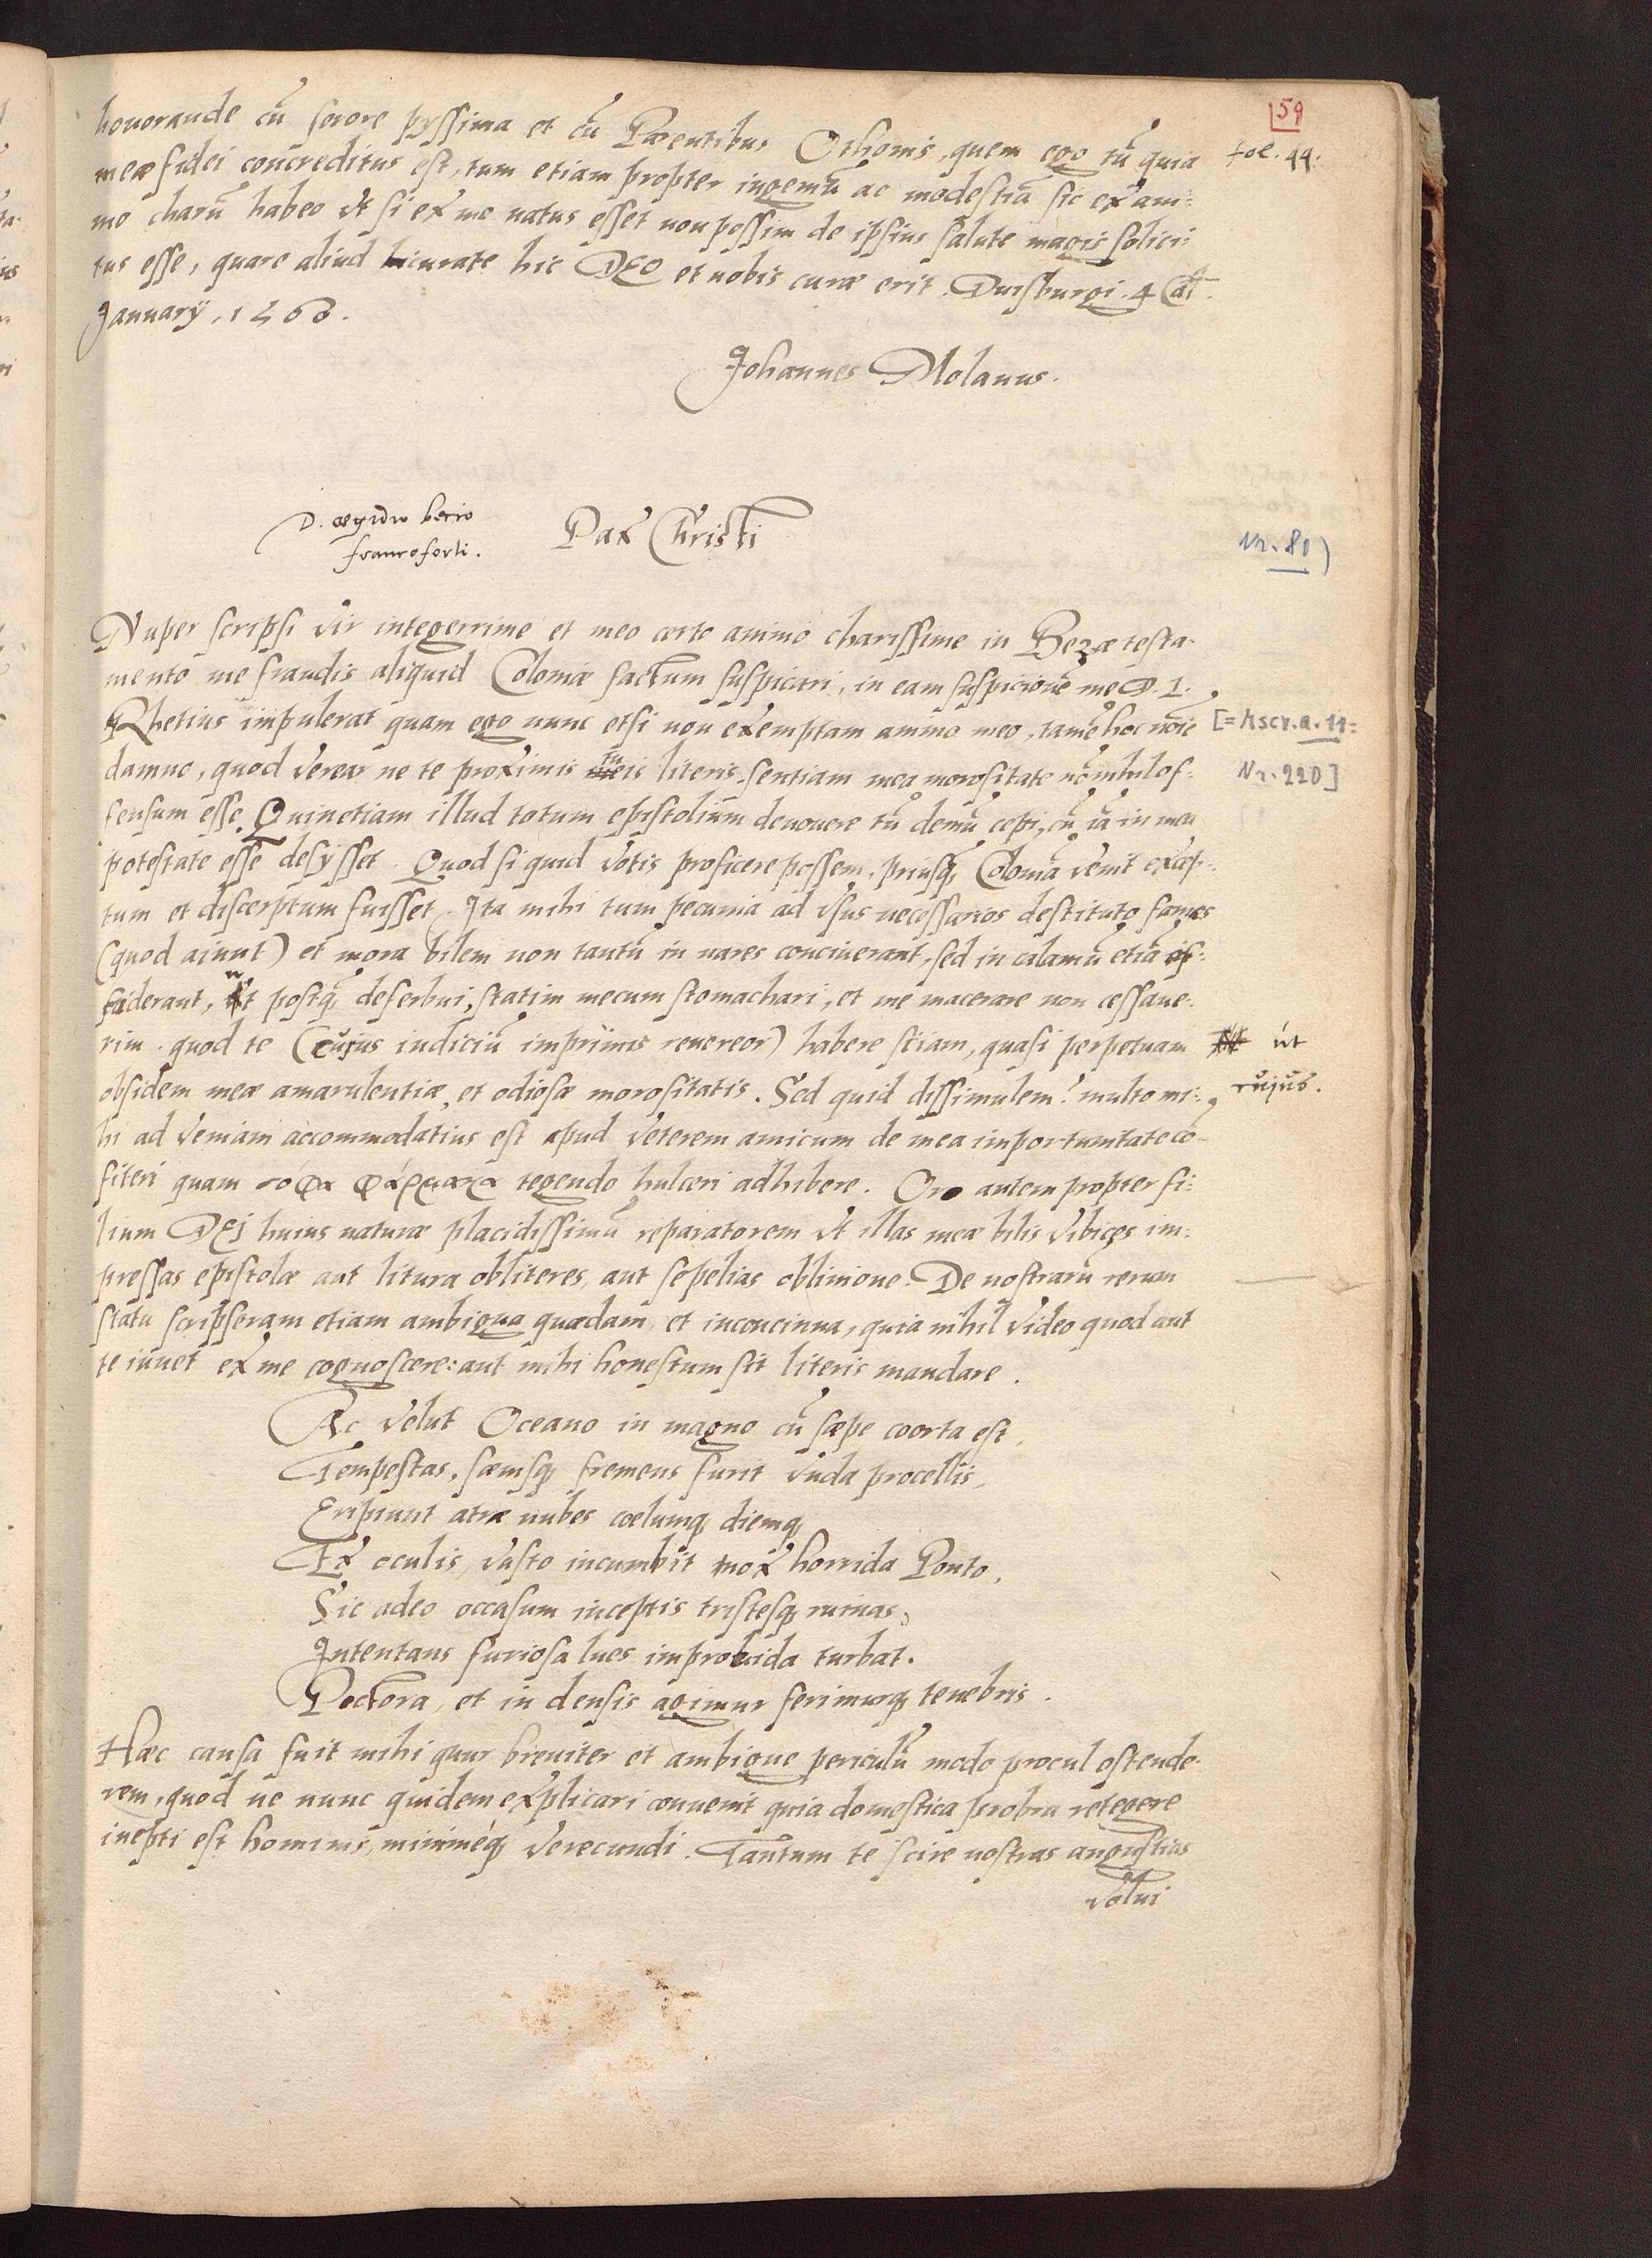 59
fol. 44.
honorande cū sorore pyssima et cū Parentibus Othonis, quem ego tū quia
meæ fidei concreditus est, tum etiam propter ingeniū ac modestiā sic ex ani:
mo charū habeo vt si ex me natus esset non possim de ipsius salute magis solici:
tus esse, quare aliud hic DEO et nobis curæ erit. Duisburgi. 4 Cal.
January, 1560.
Johannes Molanus.
D. ægidio
francoforti.
Pax Christi
Nr. 80)
Nuper scripsi vir integerrime et meo certe animo charissime in Bezæ testa-
mento me fraudis aliquid Coloniæ factum suspicari, in eam suspicionē me D. I.
Rhetius impulerat quam ego nunc etsi non exemptam animo meo, tamē hoc noīe
[= hscr. a. 11:
damno, quod verear ne te proximis tuis literis sentiam mea morositate nōnihil of:
Nr. 220]
fensum esse. Quinetiam illud totum epistolium devovere tū demū cepi, cū iā in mea
potestate esse desÿsset. Quod si quid votis proficere possem, priusq Coloniā venit excep-
tum et discerptum fuisset. Ita mihi tum pecunia ad vsus necessarios destituto fames
(quod aiunt) et mora bilem non tantū in nares conciuerant, sed in calamū etiā if:
fuderant, vt postq deferbui, statim mecum stomachari, et me macerare non cessaue-
rim. quod te (cujus iudiciū imprimis reuereor) habere sciam, quasi perpetuam
út
obsidem meæ amarulentiæ, et odiosæ morositatis. Sed quid dissimulem? multo mi:
cujus.
hi ad veniam accommodatius est apud veterem amicum de mea importunitate cō-
fiteri quam φάρμακα tegendo hulceri adhibere. Oro autem propter fi:
lium DEJ huius naturæ placidissimū reparatorem vt illas meæ bilis vibices im:
pressas epistolæ aut litura obliteres, aut sepelias obliuione. De nostrarū rerum
statu scripseram etiam ambigua quædam, et inconcinna, quia nihil video quod aut
te iuuet ex me cognoscere: aut mihi honestum sit literis mandare.
Ac velut Oceano in magno cū sæpe coorta est,
Tempestas, sæuisq fremens furit vnda procellis,
Eripiunt atræ nubes cœlumq diemq
Ex oculis, vasto incumbit nox horrida Ponto,
Sic adeo occasum inceptis tristesq ruinas,
Intentans furiosa lues improuida turbat.
Pectora, et in densis agimur ferimurq tenebris.
Hæc causa fuit mihi quur breuiter et ambigue periculū modo procul ostende-
rem, quod ne nunc quidem explicari conuenit quia domestica probra retegere
inepti est hominis, miniméq verecundi. Tantum te scire nostras angustias
volui